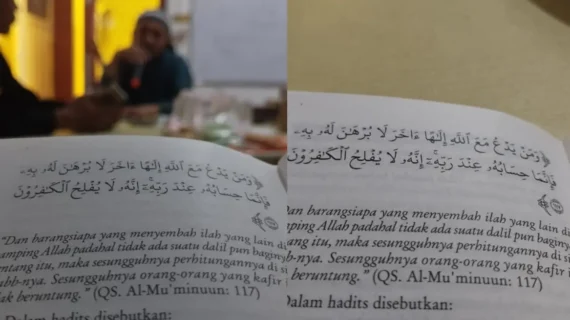 ﴿ وَمَنْ يَدْعُ مَعَ ٱللَّهِ إِلَـٰهًا ءَاخَرَ لَا بُرْهَـٰنَ لَهُۥ بِهِۦ
فَإِنَّمَا حِسَابُهُۥ عِندَ رَبِّهِۦٓ ۚ إِنَّهُۥ لَا يُفْلِحُ ٱلْكَـٰفِرُونَ
﴾
"Dan barangsiapa yang menyembah ilah yang lain di
amping Allah padahal tidak ada suatu dalil pun baginy
entang itu, maka sesungguhnya perhitungannya di si
abb-nya. Sesungguhnya orang-orang yang kafir i
ak beruntung." (QS. Al-Mu'minuun: 117)
Dalam hadits disebutkan:
﴿ وَمَنْ يَدْعُ مَعَ ٱللَّهِ إِلَـٰهًا ءَاخَرَ لَا بُرْهَـٰنَ لَهُۥ بِهِۦ
فَإِنَّمَا حِسَابُهُۥ عِندَ رَبِّهِۦٓ ۚ إِنَّهُۥ لَا يُفْلِحُ ٱلْكَـٰفِرُونَ
﴾
Dan barangsiapa yang menyembah ilah yang lain di
amping Allah padahal tidak ada suatu dalil pun baginy
ntang itu, maka sesungguhnya perhitungannya di si
bb-nya. Sesungguhnya orang-orang yang kafir i
k beruntung." (QS. Al-Mu'minuun: 117)
Dalam hadits disebutkan: